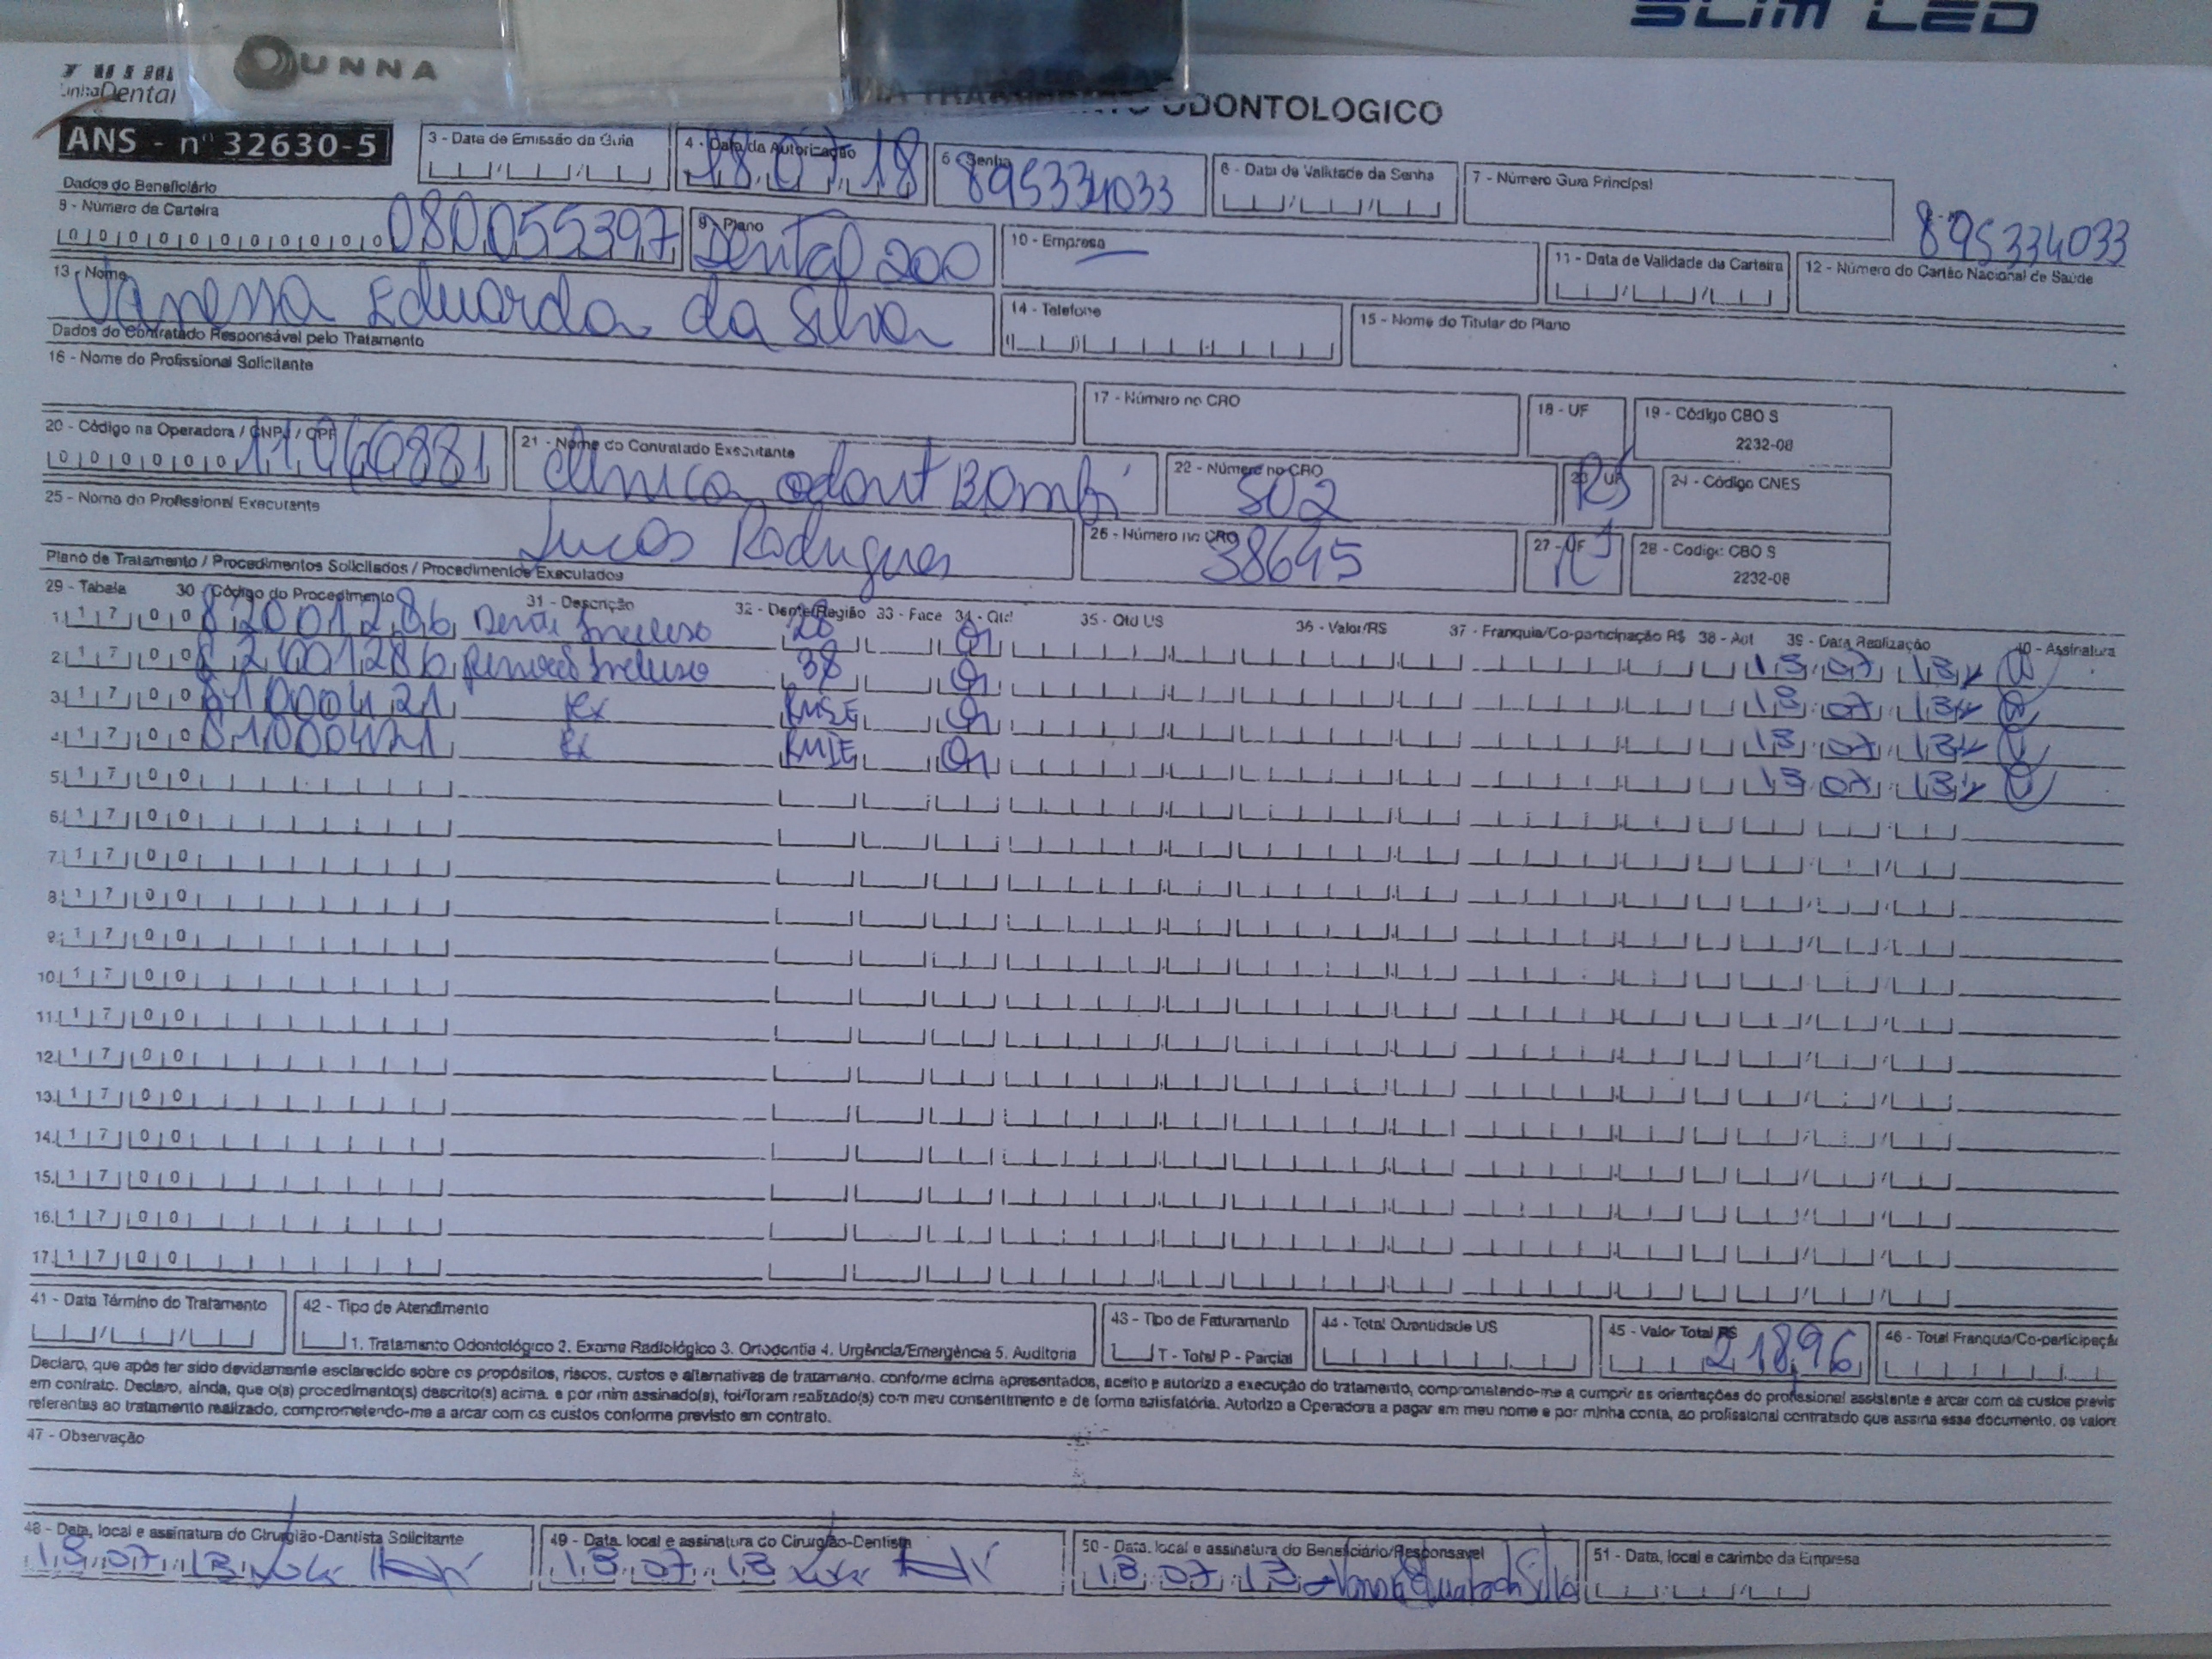 SLIM LED
OUNNA
UnnaDental
ODONTOLOGICO
8953334033
ANS - nº 32630-5
3 - Data de Emissão da Guia
4 - Data da Autorização
18 07 18
5 Senha
8953334033
6 - Data de Validade da Senha
7 - Número Guia Principal
Dados do Beneficiário
8 - Número da Carteira
0 0 0 0 0 0 0 0 0 0 08055397
9 Plano
Dental 200
10 - Empresa
11 - Data de Validade da Carteira
12 - Número do Cartão Nacional de Saúde
13 - Nome
Eduarda da Silva
14 - Telefone
15 - Nome do Titular do Plano
Dados do Contratado Responsável pelo Tratamento
16 - Nome do Profissional Solicitante
17 - Número no CRO
18 - UF
19 - Código CBO S
2232-08
20 - Código na Operadora / CNPJ / CPF
21 - Nome do Contratado Executante
Clinica odont Bombi
22 - Número no CRO
502
23 UF
RJ
24 - Código CNES
25 - Nome do Profissional Executante
Lucas Rodrigues
26 - Número no CRO
38645
27 - UF
RJ
28 - Código CBO S
2232-08
Plano de Tratamento / Procedimentos Solicitados / Procedimentos Executados
29 - Tabela 30 - Código do Procedimento 31 - Descrição 32 - Dente/Região 33 - Face 34 - Qtd 35 - Qtd US 36 - Valor/R$ 37 - Franquia/Co-participação R$ 38 - Aut 39 - Data Realização 40 - Assinatura
1. 1 7 0 0 82001286 Dente Incluso 28 01 13 07 18
2. 1 7 0 0 82001286 Remoção Incluso 38 01 13 07 18
3. 1 7 0 0 81000421 Rx RMSE 01 13 07 18
4. 1 7 0 0 81000421 Rx RMIE 01 13 07 18
5. 1 7 0 0
6. 1 7 0 0
7. 1 7 0 0
8. 1 7 0 0
9. 1 7 0 0
10. 1 7 0 0
11. 1 7 0 0
12. 1 7 0 0
13. 1 7 0 0
14. 1 7 0 0
15. 1 7 0 0
16. 1 7 0 0
17. 1 7 0 0
41 - Data Término do Tratamento
42 - Tipo de Atendimento
1. Tratamento Odontológico 2. Exame Radiológico 3. Ortodontia 4. Urgência/Emergência 5. Auditoria
43 - Tipo de Faturamento
T - Total P - Parcial
44 - Total Quantidade US
45 - Valor Total R$
218 96
46 - Total Franquia/Co-participação
Declaro, que após ter sido devidamente esclarecido sobre os propósitos, riscos, custos e alternativas de tratamento, conforme acima apresentados, aceito e autorizo a execução do tratamento, comprometendo-me a cumprir as orientações do profissional assistente e arcar com os custos previs
em contrato. Declaro, ainda, que o(s) procedimento(s) descrito(s) acima, e por mim assinado(s), foi/foram realizado(s) com meu consentimento e de forma satisfatória. Autorizo a Operadora a pagar em meu nome e por minha conta, ao profissional contratado que assina esse documento, os valore
referentes ao tratamento realizado, comprometendo-me a arcar com os custos conforme previsto em contrato.
47 - Observação
48 - Data, local e assinatura do Cirurgião-Dentista Solicitante
18 07 18
49 - Data, local e assinatura do Cirurgião-Dentista
18 07 18
50 - Data, local e assinatura do Beneficiário/Responsável
18 07 18
51 - Data, local e carimbo da Empresa